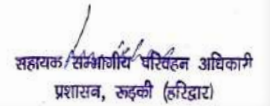 सहायक सम्भागीय परिवहन अधिकारी
प्रशासन, रूड़की (हरिद्वार)